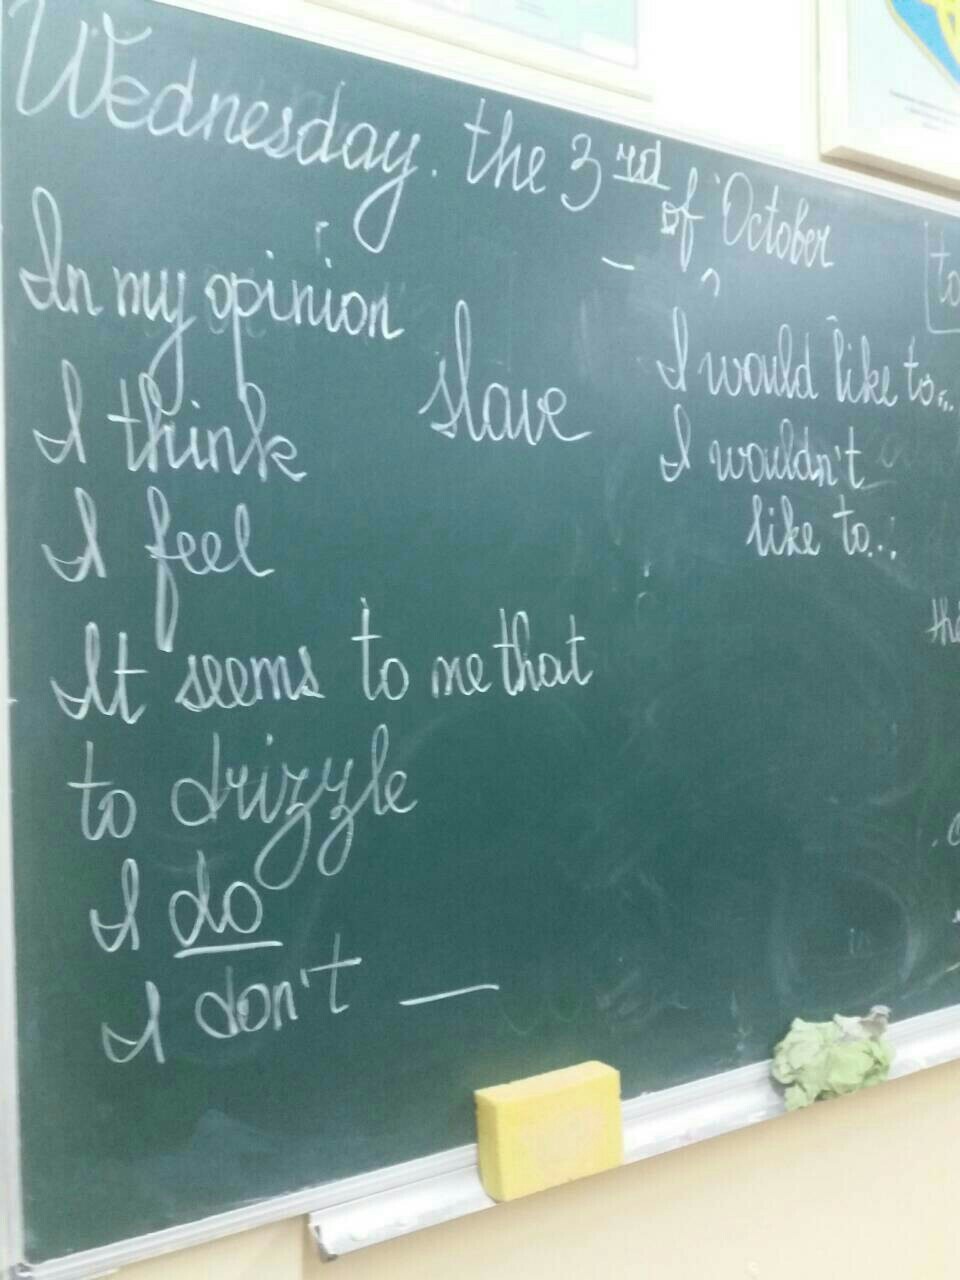 Wednesday. the 3rd of October
In my opinion
I think
slave
I feel
It seems to me that
to drizzle
I do
I don't —
I would like to...
I wouldn't
like to...
to